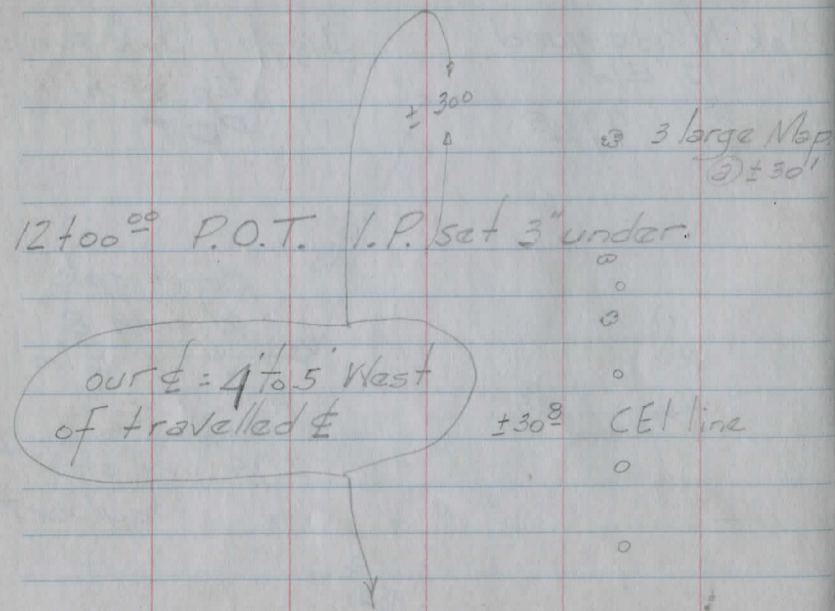 ± 30⁰
3 large Map.
@ ± 30'
12+00⁰⁰ P.O.T. I.P. set 3" under.
our ℄ = 4' to 5' West
of travelled ℄
±30⁸ CEI line